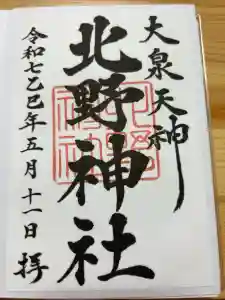 大泉天神
北野神社
令和七乙巳年五月十一日 拝